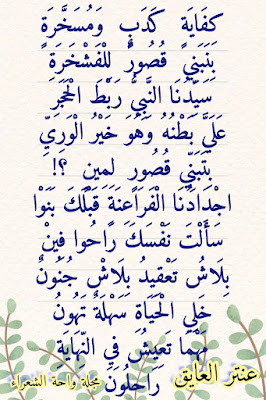 كِفَايَةٍ كَدَبٍ وَمُسَخَّرَةِ
بَتَبَنِيٍّ قُصُورٌ لِلْفَشْخَرَةِ
سَيِّدُنَا النَّبِيُّ رَبَطَ الْحَجَرَ
عَلَيَّ بَطْنُهُ وَهُوَ خَيْرُ الْوَرِيِّ
بِتَبَنِّي قُصُورِ لِمِينِ ؟!
اجْدَادُنَا الْفَرَاعَنَةَ قَبْلَكَ بَنَوْا
سَأَلْتَ نَفْسَكَ رَاحُوا فِينْ
بِلَاشُ تَعْقِيدُ بَلَاشْ جُنُونٌ
خَلِي الْحَيَاةِ سَهْلَةٌ تَهُونُ
مَهْمَا تَعِيشُ فِي النِّهَايَةِ
رَاحِلُونَ
عنتر العايق
مجلة واحة الشعراء